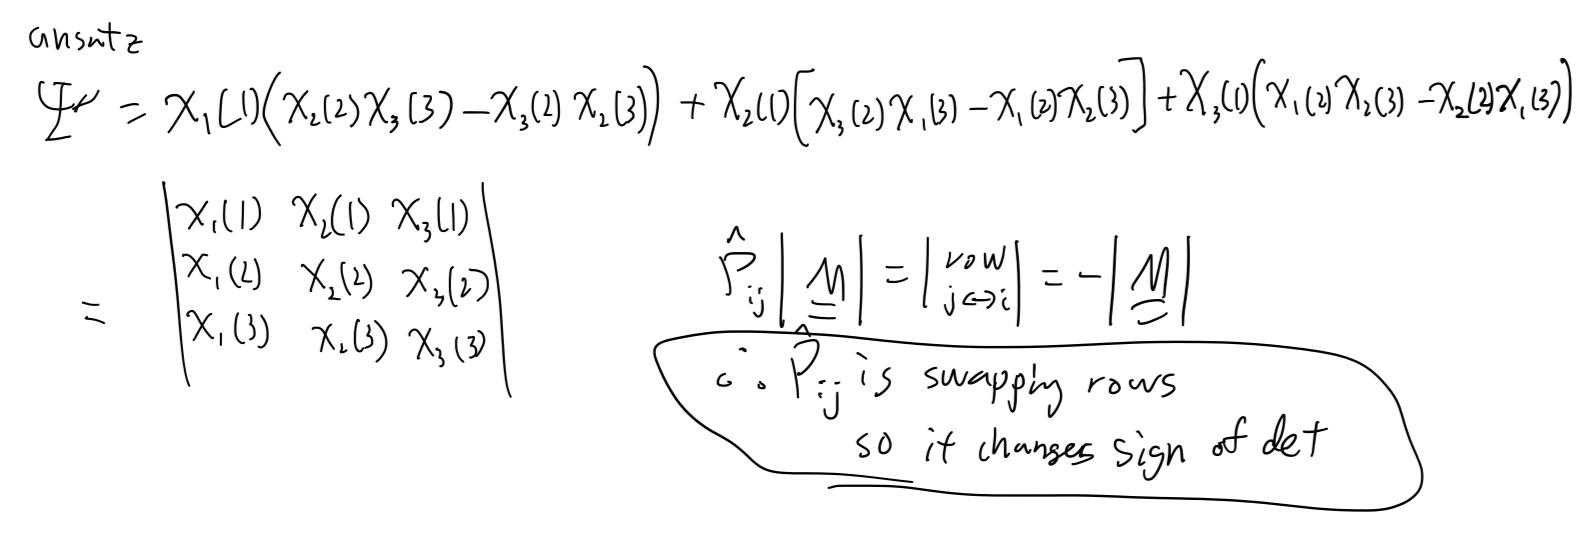 ansatz
Ψ = χ₁(1)(χ₂(2)χ₃(3) − χ₃(2)χ₂(3)) + χ₂(1)[χ₃(2)χ₁(3) − χ₁(2)χ₂(3)] + χ₃(1)(χ₁(2)χ₂(3) − χ₂(2)χ₁(3))
= | χ₁(1) χ₂(1) χ₃(1) |
| χ₁(2) χ₂(2) χ₃(2) |
| χ₁(3) χ₂(3) χ₃(3) |
P̂ᵢⱼ |M| = |row j↔i| = −|M|
∴ P̂ᵢⱼ is swapping rows
so it changes sign of det